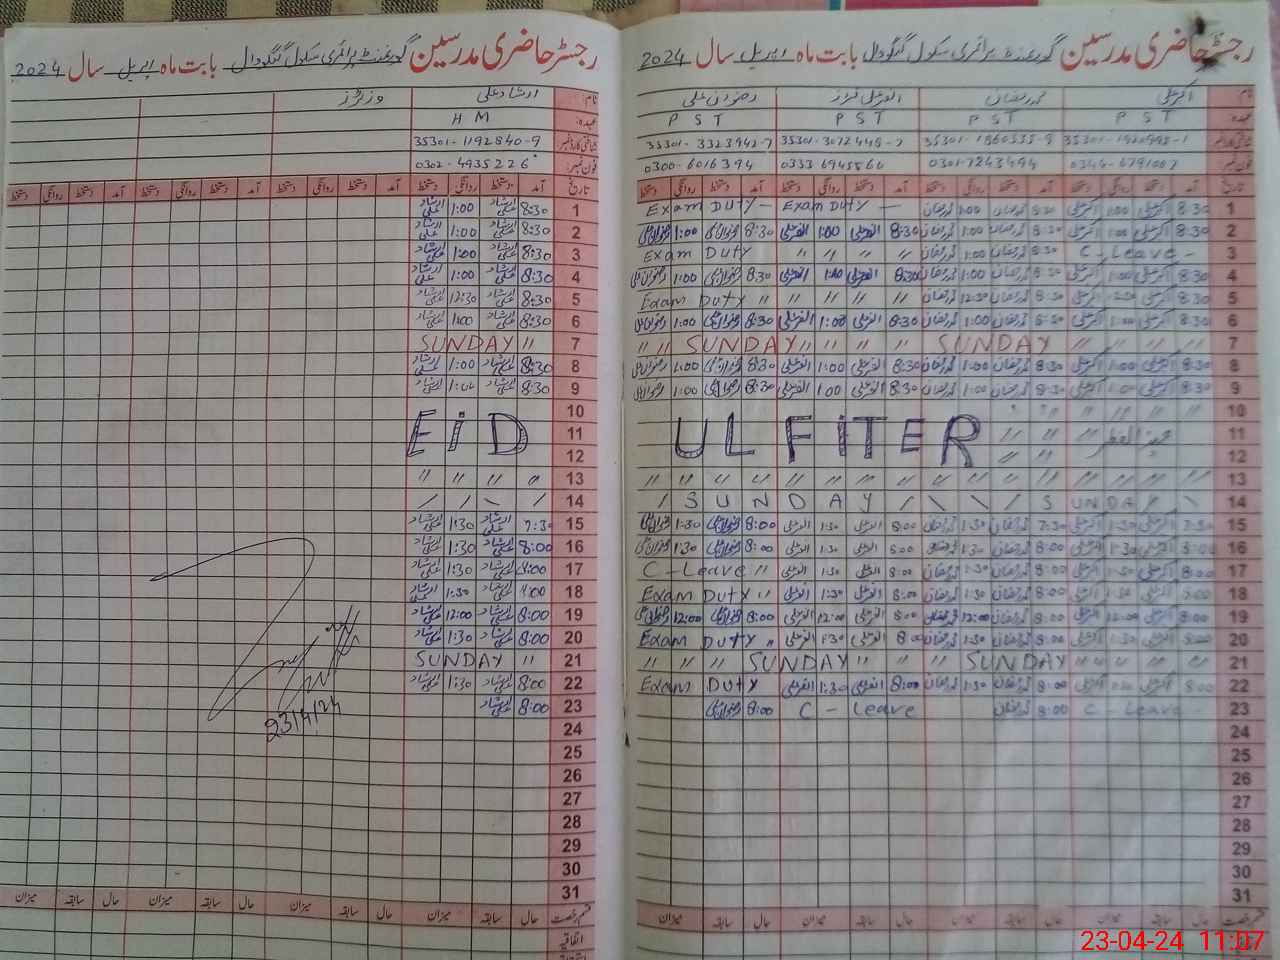 رجسٹر حاضری مدرسین گورنمنٹ پرائمری سکول گنگووال بابت ماہ اپریل سال 2024
نام: اکبر علی محمد رمضان رضوان علی
عہدہ: P S T P S T P S T P S T
شناختی کارڈ نمبر 35301-3072448-7 35301-3323942-7
فون نمبر: 0301-7243494 0300-6016394
تاریخ آمد دستخط روانگی دستخط آمد دستخط روانگی دستخط آمد دستخط روانگی دستخط آمد دستخط روانگی دستخط
1 8:30 اکبر علی 1:00 اکبر علی 8:30 محمد رمضان 1:00 محمد رمضان Exam Duty — Exam Duty —
2 8:30 اکبر علی 1:00 اکبر علی 8:30 محمد رمضان 1:00 محمد رمضان 8:30 1:00 8:30 رضوان علی 1:00 رضوان علی
3 C - Leave - 8:30 محمد رمضان 1:00 محمد رمضان " " " " Exam Duty
4 8:30 اکبر علی 1:00 اکبر علی 8:30 محمد رمضان 1:00 محمد رمضان 8:30 1:00 8:30 رضوان علی 1:00 رضوان علی
5 8:30 اکبر علی 12:30 اکبر علی 8:30 محمد رمضان 12:30 محمد رمضان " " " " Exam Duty "
6 8:30 اکبر علی 1:00 اکبر علی 8:30 محمد رمضان 1:00 محمد رمضان 8:30 1:00 8:30 رضوان علی 1:00 رضوان علی
7 " " SUNDAY " " " " SUNDAY " " " "
8 8:30 اکبر علی 1:00 اکبر علی 8:30 محمد رمضان 1:00 محمد رمضان 8:30 1:00 8:30 رضوان علی 1:00 رضوان علی
9 8:30 اکبر علی 1:00 اکبر علی 8:30 محمد رمضان 1:00 محمد رمضان 8:30 1:00 8:30 رضوان علی 1:00 رضوان علی
10
11 UL FITER عید الفطر
12
13 " " " " " " " " " " " " " " " "
14 SUNDAY SUNDAY
15 7:30 اکبر علی 1:30 اکبر علی 7:30 محمد رمضان 1:30 محمد رمضان 8:00 1:30 8:00 رضوان علی 1:30 رضوان علی
16 8:00 اکبر علی 1:30 اکبر علی 8:00 محمد رمضان 1:30 محمد رمضان 8:00 1:30 8:00 رضوان علی 1:30 رضوان علی
17 8:00 اکبر علی 1:30 اکبر علی 8:00 محمد رمضان 1:30 محمد رمضان 8:00 1:30 C - Leave "
18 8:00 اکبر علی 1:30 اکبر علی 8:00 محمد رمضان 1:30 محمد رمضان 8:00 1:30 Exam Duty "
19 8:00 اکبر علی 12:00 اکبر علی 8:00 محمد رمضان 12:00 محمد رمضان 8:00 12:00 8:00 رضوان علی 12:00 رضوان علی
20 8:00 اکبر علی 1:30 اکبر علی 8:00 محمد رمضان 1:30 محمد رمضان 8:00 1:30 Exam Duty "
21 " " " SUNDAY " " " " SUNDAY " " " "
22 8:00 اکبر علی 1:30 اکبر علی 8:00 محمد رمضان 1:30 محمد رمضان 8:00 1:30 Exam Duty
23 C - Leave 8:00 محمد رمضان C - Leave 8:00 رضوان علی
24
25
26
27
28
29
30
31
قسم رخصت حال سابقہ میزان حال سابقہ میزان حال سابقہ میزان حال سابقہ میزان
رجسٹر حاضری مدرسین گورنمنٹ پرائمری سکول گنگووال بابت ماہ اپریل سال 2024
نام: ارشاد علی وزیٹرز
عہدہ: H M
شناختی کارڈ نمبر 35301-1192840-9
فون نمبر: 0302-4935226
تاریخ آمد دستخط روانگی دستخط آمد دستخط روانگی دستخط آمد دستخط روانگی دستخط آمد دستخط روانگی دستخط
1 8:30 ارشاد علی 1:00 ارشاد علی
2 8:30 ارشاد علی 1:00 ارشاد علی
3 8:30 ارشاد علی 1:00 ارشاد علی
4 8:30 ارشاد علی 1:00 ارشاد علی
5 8:30 ارشاد علی 12:30 ارشاد علی
6 8:30 ارشاد علی 1:00 ارشاد علی
7 SUNDAY "
8 8:30 ارشاد علی 1:00 ارشاد علی
9 8:30 ارشاد علی 1:00 ارشاد علی
10
11 EiD
12
13 " " " "
14
15 7:30 ارشاد علی 1:30 ارشاد علی
16 8:00 ارشاد علی 1:30 ارشاد علی
17 8:00 ارشاد علی 1:30 ارشاد علی
18 8:00 ارشاد علی 1:30 ارشاد علی
19 8:00 ارشاد علی 12:00 ارشاد علی
20 8:00 ارشاد علی 1:30 ارشاد علی
21 SUNDAY "
22 8:00 ارشاد علی 1:30 ارشاد علی
23 8:00 ارشاد علی
23/4/24
24
25
26
27
28
29
30
31
قسم رخصت حال سابقہ میزان حال سابقہ میزان حال سابقہ میزان حال سابقہ میزان
اتفاقیہ
23-04-24 11:07